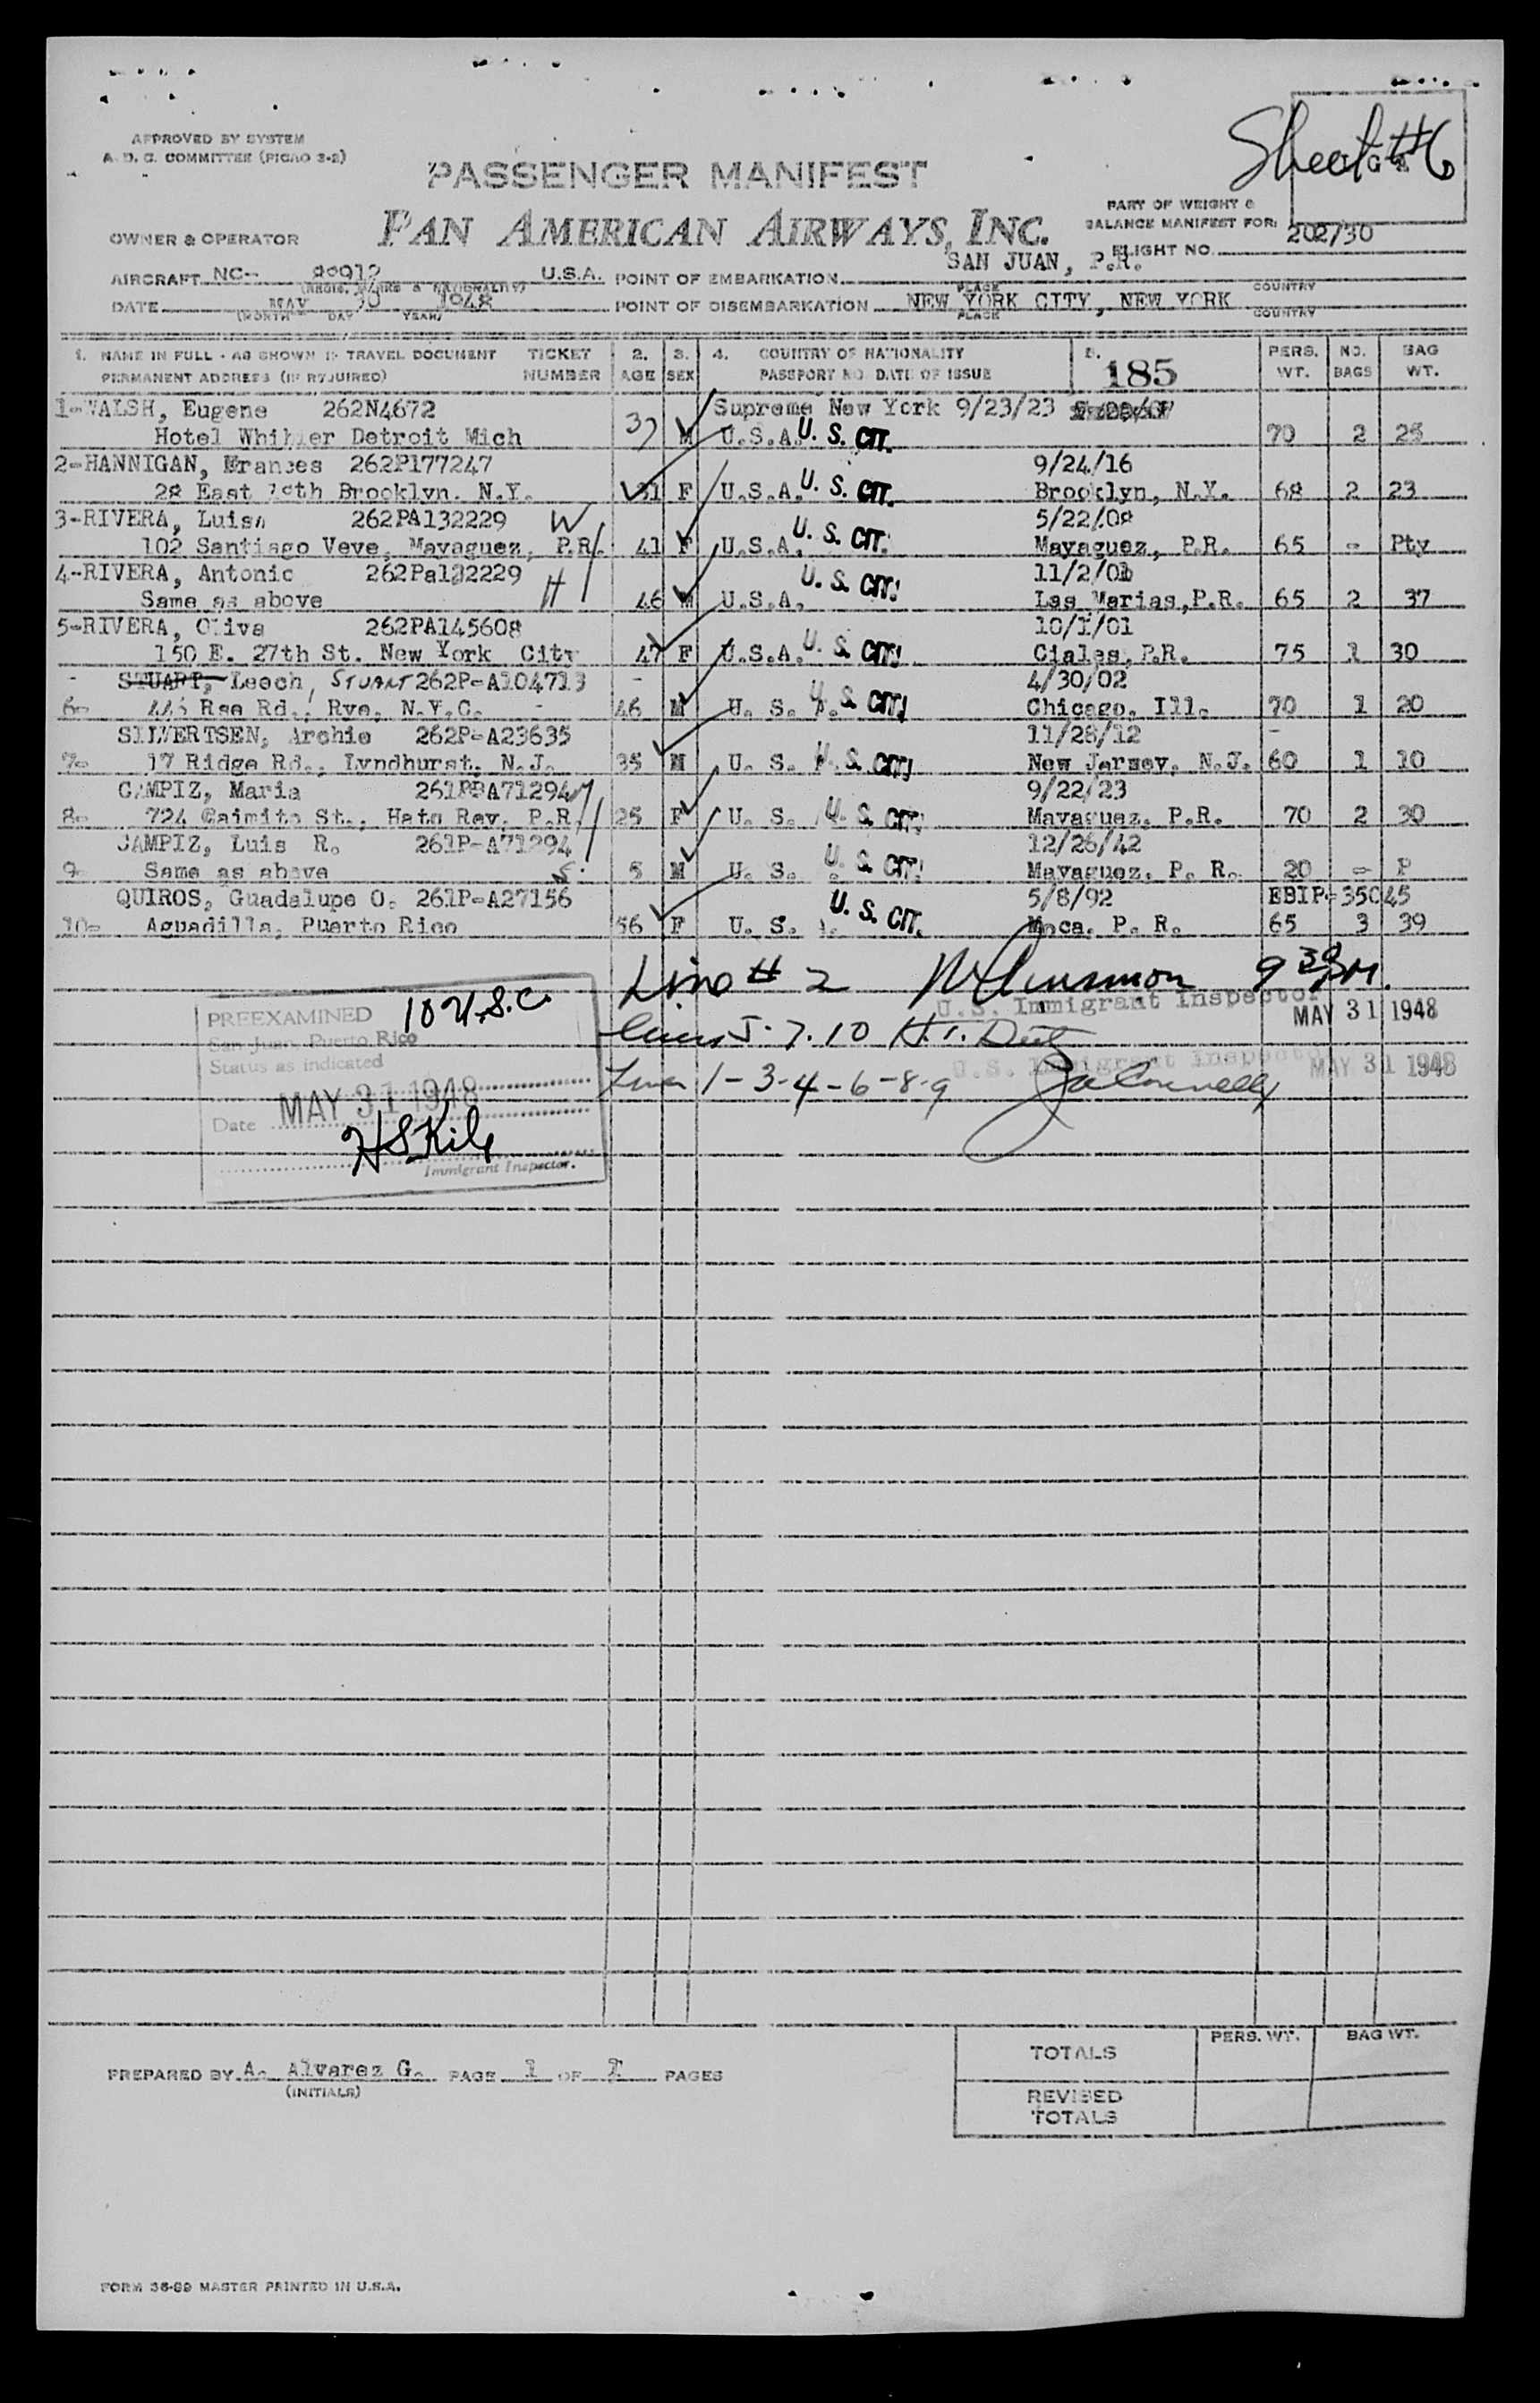 APPROVED BY SYSTEM
A. D. C. COMMITTEE (PICAO 3-2)
Sheet #6
PASSENGER MANIFEST
PAN AMERICAN AIRWAYS, INC.
OWNER & OPERATOR
PART OF WEIGHT &
BALANCE MANIFEST FOR:
FLIGHT NO. 202/30
AIRCRAFT NC- U.S.A. POINT OF EMBARKATION SAN JUAN, P.R.
PLACE COUNTRY
DATE MAY 30 1948 POINT OF DISEMBARKATION NEW YORK CITY, NEW YORK
(MONTH DAY YEAR) PLACE COUNTRY
1. NAME IN FULL - AS SHOWN IN TRAVEL DOCUMENT TICKET 2. 3. 4. COUNTRY OF NATIONALITY 5. PERS. NO. BAG
PERMANENT ADDRESS (IF REQUIRED) NUMBER AGE SEX PASSPORT NO DATE OF ISSUE 185 WT. BAGS WT.
1-WALSH, Eugene 262N4672 Supreme New York 9/23/23
Hotel Detroit Mich 37 M U.S.A. U. S. CIT. 70 2 25
2-HANNIGAN, Frances 262P177247 9/24/16
28 East Brooklyn. N.Y. 31 F U.S.A. U. S. CIT. Brooklyn, N.Y. 68 2 23
3-RIVERA, Luisa 262PA132229 W 5/22/08
102 Santiago Veve, Mayaguez, P.R. 41 F U.S.A. U. S. CIT. Mayaguez, P.R. 65 - Pty
4-RIVERA, Antonio 262Pa132229 H 11/2/01
Same as above 46 M U.S.A. U. S. CIT. Las Marias, P.R. 65 2 37
5-RIVERA, Oliva 262PA145608 10/1/01
150 E. 27th St. New York City 47 F U.S.A. U. S. CIT. Ciales, P.R. 75 1 30
STUART, Leech, STUART 262P-A104713 4/30/02
6- Rd., Rye, N.Y.C. 46 M U. S. A. U. S. CIT. Chicago, Ill. 70 1 20
SILVERTSEN, Archie 262P-A23635 11/28/12
7- 17 Ridge Rd., Lyndhurst, N.J. 35 M U. S. A. U. S. CIT. New Jersey, N.J. 60 1 10
CAMPIZ, Maria 9/22/23
8- 724 Caimito St., Hato Rey, P.R. 25 F U. S. U. S. CIT. Mayaguez, P.R. 70 2 30
CAMPIZ, Luis R. 261P-A71294 12/26/42
9- Same as above S. 5 M U. S. U. S. CIT. Mayaguez, P. R. 20 - P
QUIROS, Guadalupe O. 261P-A27156 5/8/92 EBIP-35045
10- Aguadilla, Puerto Rico 56 F U. S. U. S. CIT. Moca, P. R. 65 3 39
Line # 2 9 30 PM.
PREEXAMINED 10 U.S.C.
U.S. Immigrant Inspector MAY 31 1948
San Juan, Puerto Rico
Lines 5-7-10
Status as indicated
U.S. Immigrant Inspector MAY 31 1948
Lines 1-3-4-6-8-9
Date MAY 31 1948
Immigrant Inspector.
PREPARED BY A. Alvarez G. PAGE 1 OF 1 PAGES
(INITIALS)
PERS. WT. BAG WT.
TOTALS
REVISED
TOTALS
FORM 36-89 MASTER PRINTED IN U.S.A.